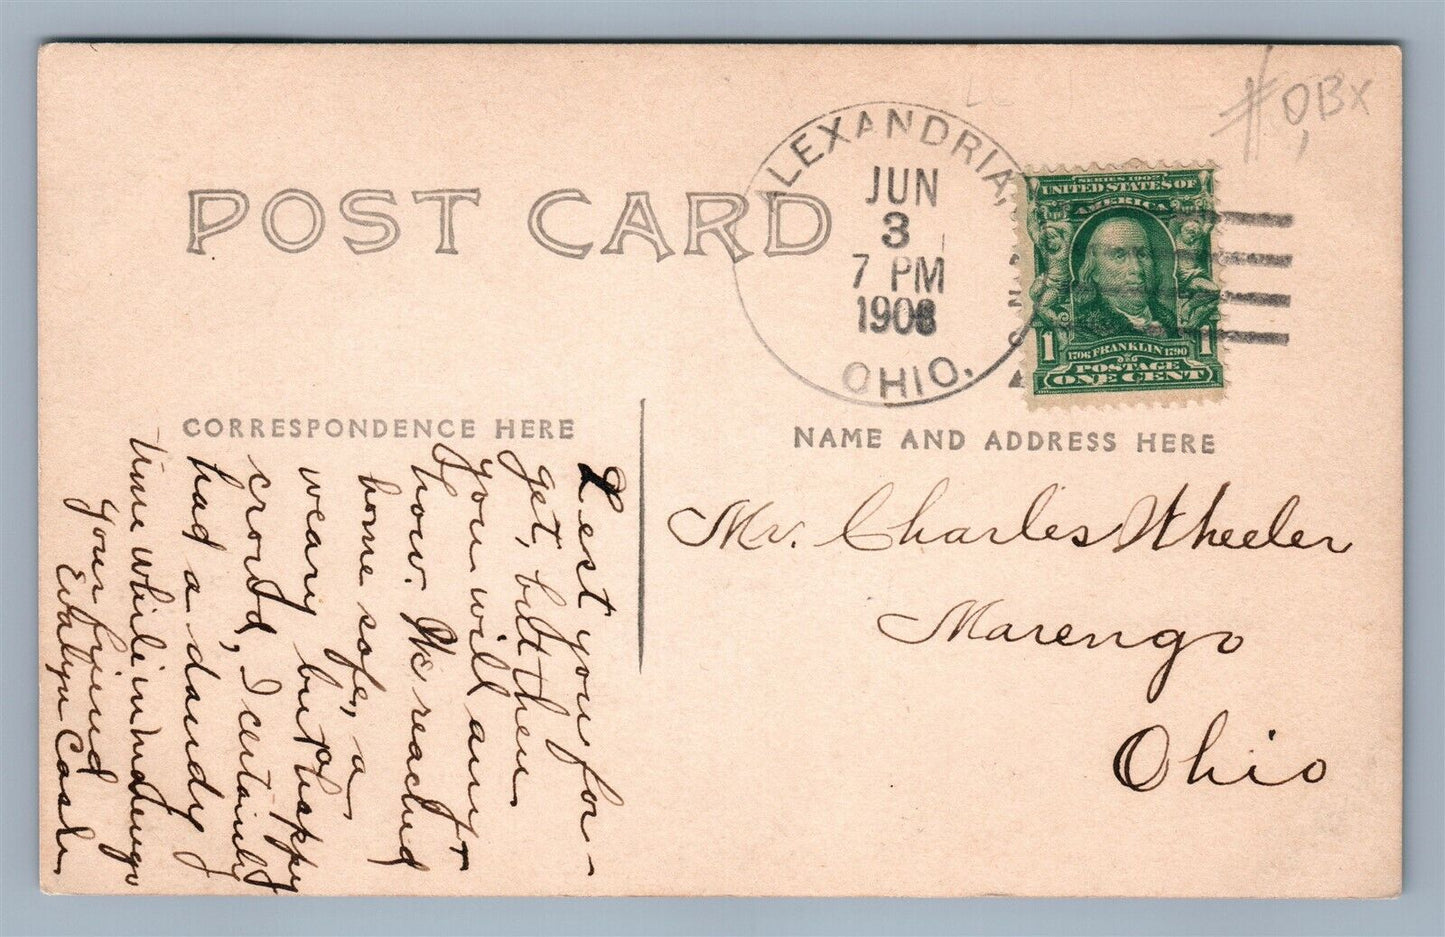 #0BX
POST CARD
ALEXANDRIA,
JUN
3
7 PM
1908
OHIO.
SERIES 1902
UNITED STATES OF
AMERICA
1 1
1706 FRANKLIN 1790
POSTAGE
ONE CENT
CORRESPONDENCE HERE
NAME AND ADDRESS HERE
Mr. Charles Wheeler
Marengo
Ohio
Lest you for-
get, but then
you will any-
how. We reached
home safe, a
weary but happy
crowd, I certainly
had a dandy
time while in Marengo
your friend
Evalyn